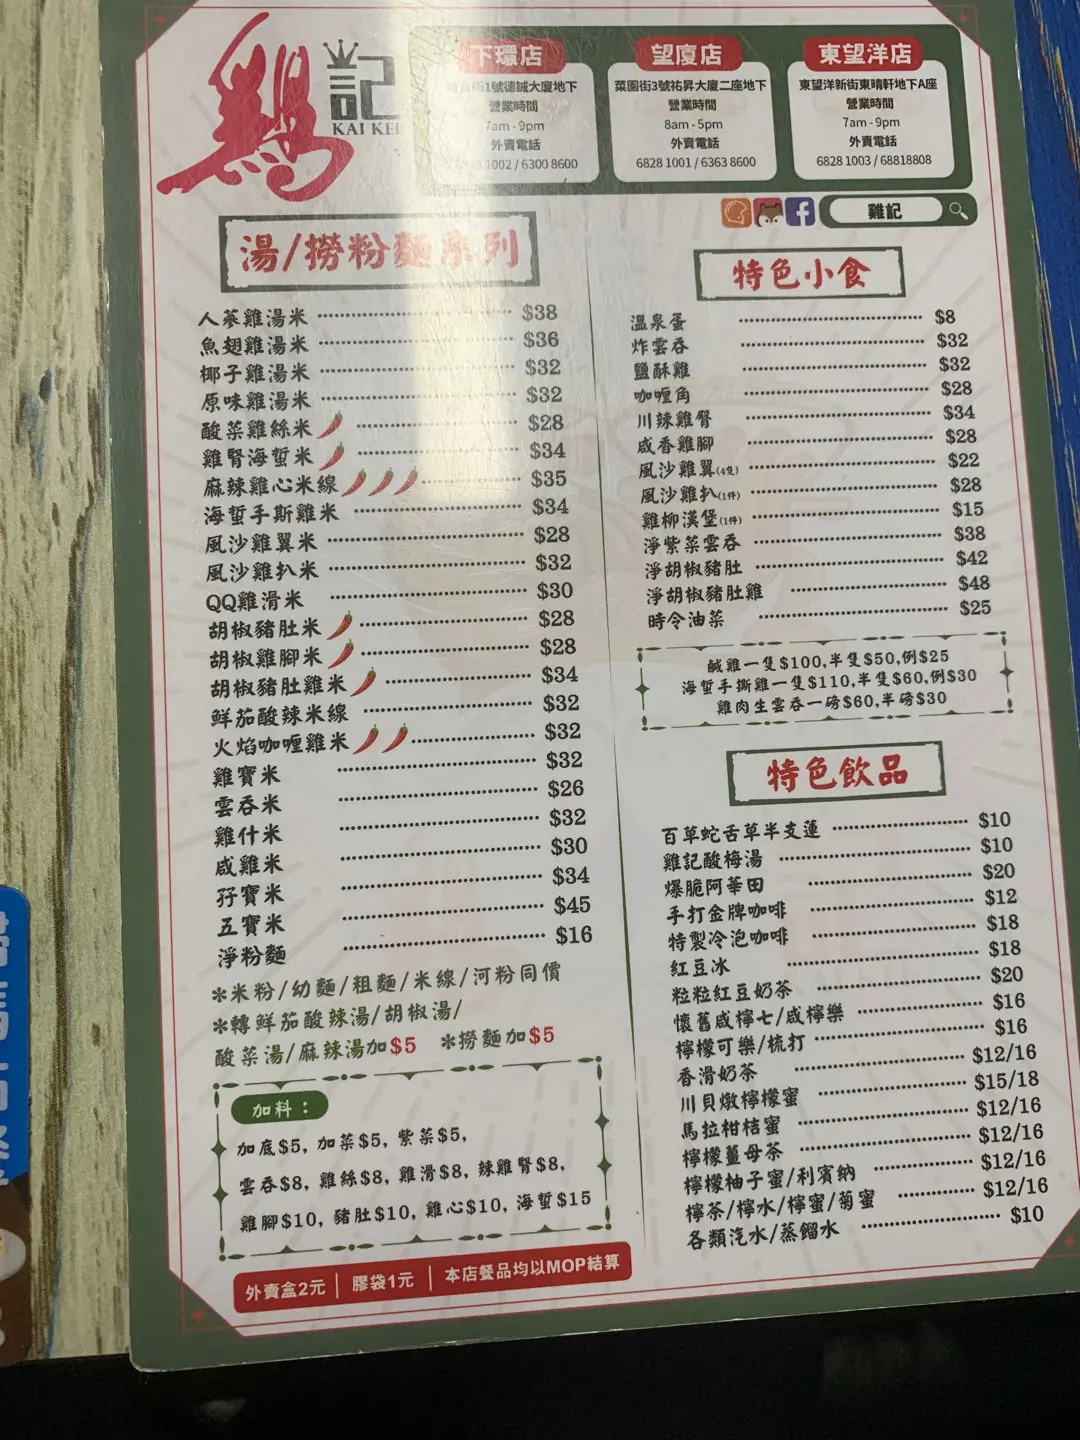 雞記
KAI KEE
下環店
街1號德誠大廈地下
營業時間
7am - 9pm
外賣電話
1002 / 6300 8600
望廈店
菜園街3號祐昇大廈二座地下
營業時間
8am - 5pm
外賣電話
6828 1001 / 6363 8600
東望洋店
東望洋新街東晴軒地下A座
營業時間
7am - 9pm
外賣電話
6828 1003 / 68818808
f 雞記
湯/撈粉麵系列
人蔘雞湯米 $38
魚翅雞湯米 $36
椰子雞湯米 $32
原味雞湯米 $32
酸菜雞絲米 $28
雞腎海蜇米 $34
麻辣雞心米線 $35
海蜇手斯雞米 $34
風沙雞翼米 $28
風沙雞扒米 $32
QQ雞滑米 $30
胡椒豬肚米 $28
胡椒雞腳米 $28
胡椒豬肚雞米 $34
鮮茄酸辣米線 $32
火焰咖喱雞米 $32
雞寶米 $32
雲吞米 $26
雞什米 $32
咸雞米 $30
孖寶米 $34
五寶米 $45
淨粉麵 $16
*米粉/幼麵/粗麵/米線/河粉同價
*轉鮮茄酸辣湯/胡椒湯/
酸菜湯/麻辣湯加$5 *撈麵加$5
加料：
加底$5, 加菜$5, 紫菜$5,
雲吞$8, 雞絲$8, 雞滑$8, 辣雞腎$8,
雞腳$10, 豬肚$10, 雞心$10, 海蜇$15
外賣盒2元 | 膠袋1元 | 本店餐品均以MOP結算
特色小食
溫泉蛋 $8
炸雲吞 $32
鹽酥雞 $32
咖喱角 $28
川辣雞腎 $34
咸香雞腳 $28
風沙雞翼(4隻) $22
風沙雞扒(1件) $28
雞柳漢堡(1件) $15
淨紫菜雲吞 $38
淨胡椒豬肚 $42
淨胡椒豬肚雞 $48
時令油菜 $25
鹹雞一隻$100,半隻$50,例$25
海蜇手撕雞一隻$110,半隻$60,例$30
雞肉生雲吞一磅$60,半磅$30
特色飲品
百草蛇舌草半支蓮 $10
雞記酸梅湯 $10
爆脆阿華田 $20
手打金牌咖啡 $12
特製冷泡咖啡 $18
紅豆冰 $18
粒粒紅豆奶茶 $20
懷舊咸檸七/咸檸樂 $16
檸檬可樂/梳打 $16
香滑奶茶 $12/16
川貝燉檸檬蜜 $15/18
馬拉柑桔蜜 $12/16
檸檬薑母茶 $12/16
檸檬柚子蜜/利賓納 $12/16
檸茶/檸水/檸蜜/菊蜜 $12/16
各類汽水/蒸餾水 $10